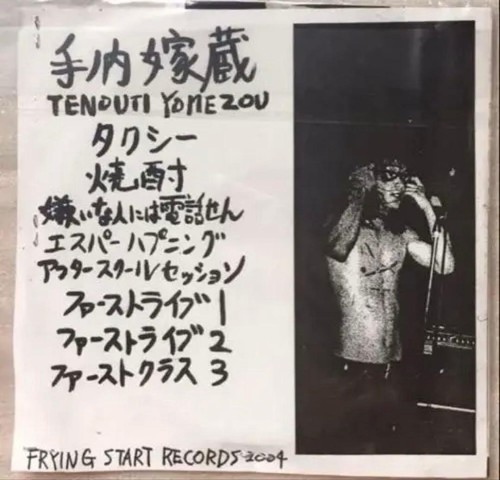 手ノ内嫁蔵
TENOUTI YOMEZOU
タクシー
焼酎
嫌いな人には電話せん
エスパーハプニング
アフタースクールセッション
ファーストライブ1
ファーストライブ2
ファーストクラス3
FRYING START RECORDS 2004